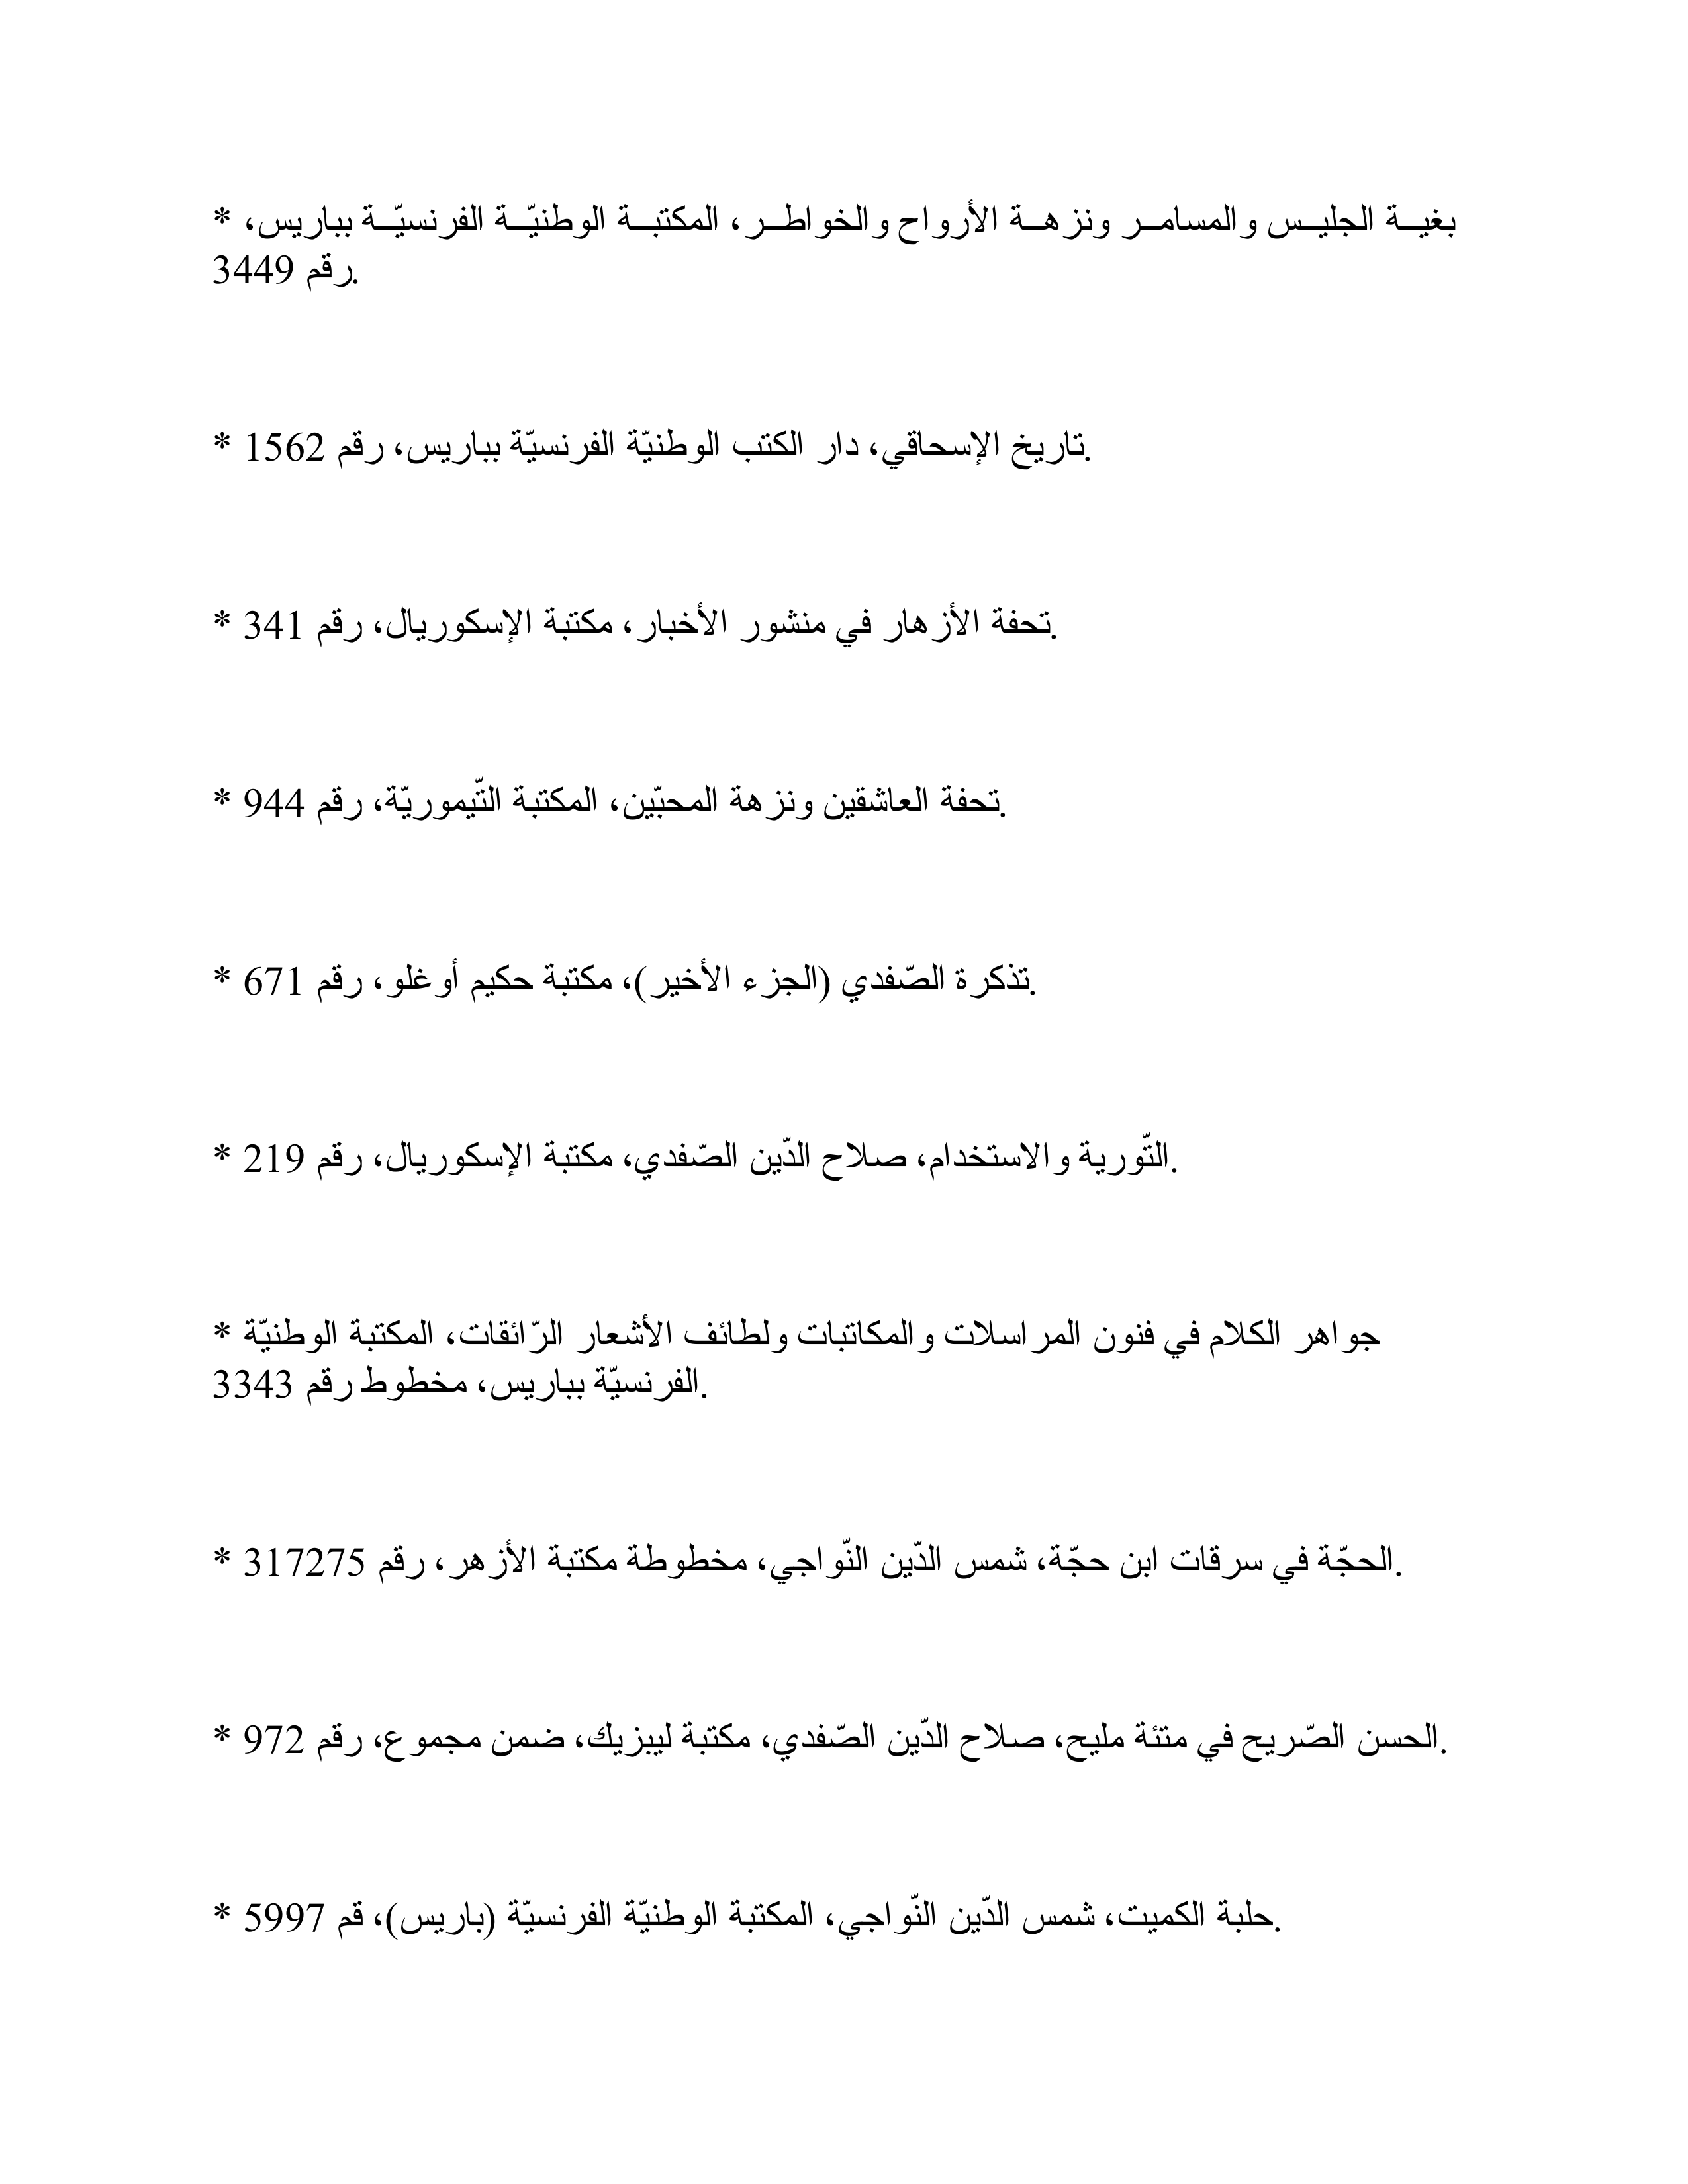 * بغيــة الجليــس والمسامــر ونزهــة الأرواح والخواطــر، المكتبــة الوطنيّــة الفرنسيّــة بباريس،
رقم 3449.
* تاريخ الإسحاقي، دار الكتب الوطنيّة الفرنسيّة بباريس، رقم 1562.
* تحفة الأزهار في منشور الأخبار، مكتبة الإسكوريال، رقم 341.
* تحفة العاشقين ونزهة المحبّين، المكتبة التّيموريّة، رقم 944.
* تذكرة الصّفدي (الجزء الأخير)، مكتبة حكيم أوغلو، رقم 671.
* التّورية والاستخدام، صلاح الدّين الصّفدي، مكتبة الإسكوريال، رقم 219.
* جواهر الكلام في فنون المراسلات والمكاتبات ولطائف الأشعار الرّائقات، المكتبة الوطنيّة
الفرنسيّة بباريس، مخطوط رقم 3343.
* الحجّة في سرقات ابن حجّة، شمس الدّين النّواجي، مخطوطة مكتبة الأزهر، رقم 317275.
* الحسن الصّريح في متئة مليح، صلاح الدّين الصّفدي، مكتبة ليبزيك، ضمن مجموع، رقم 972.
* حلبة الكميت، شمس الدّين النّواجي، المكتبة الوطنيّة الفرنسيّة (باريس)، قم 5997.